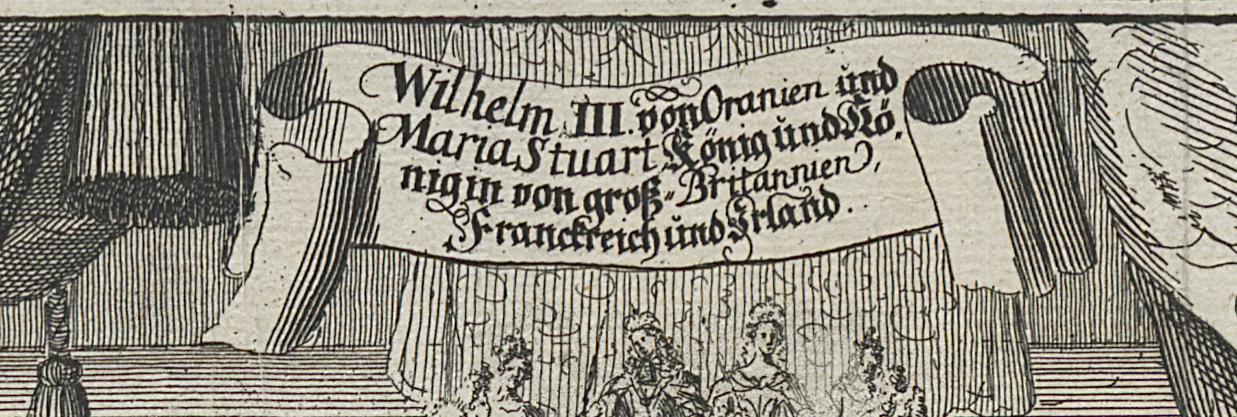 Wilhelm III. von Oranien und
Maria Stuart König und Kö-
nigin von groß-Britannien,
Franckreich und Irland.